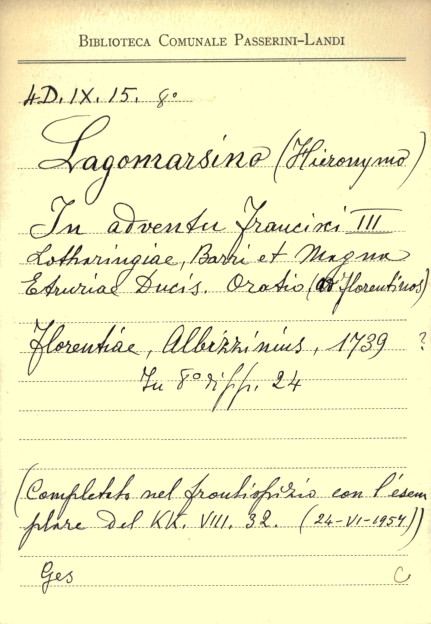 BIBLIOTECA COMUNALE PASSERINI-LANDI
4D. IX. 15. 8°
Lagomarsino (Hieronymo)
In adventu Francisci III
Lotharingiae, Barri et Magna
Etruriae Ducis. Oratio (ad Florentinos)
Florentiae, Albizzinius, 1739 ?
In 8° di pp. 24
(Completato nel frontispizio con l'esem
plare del KK. VIII. 32. (24-VI-1957))
Ges C